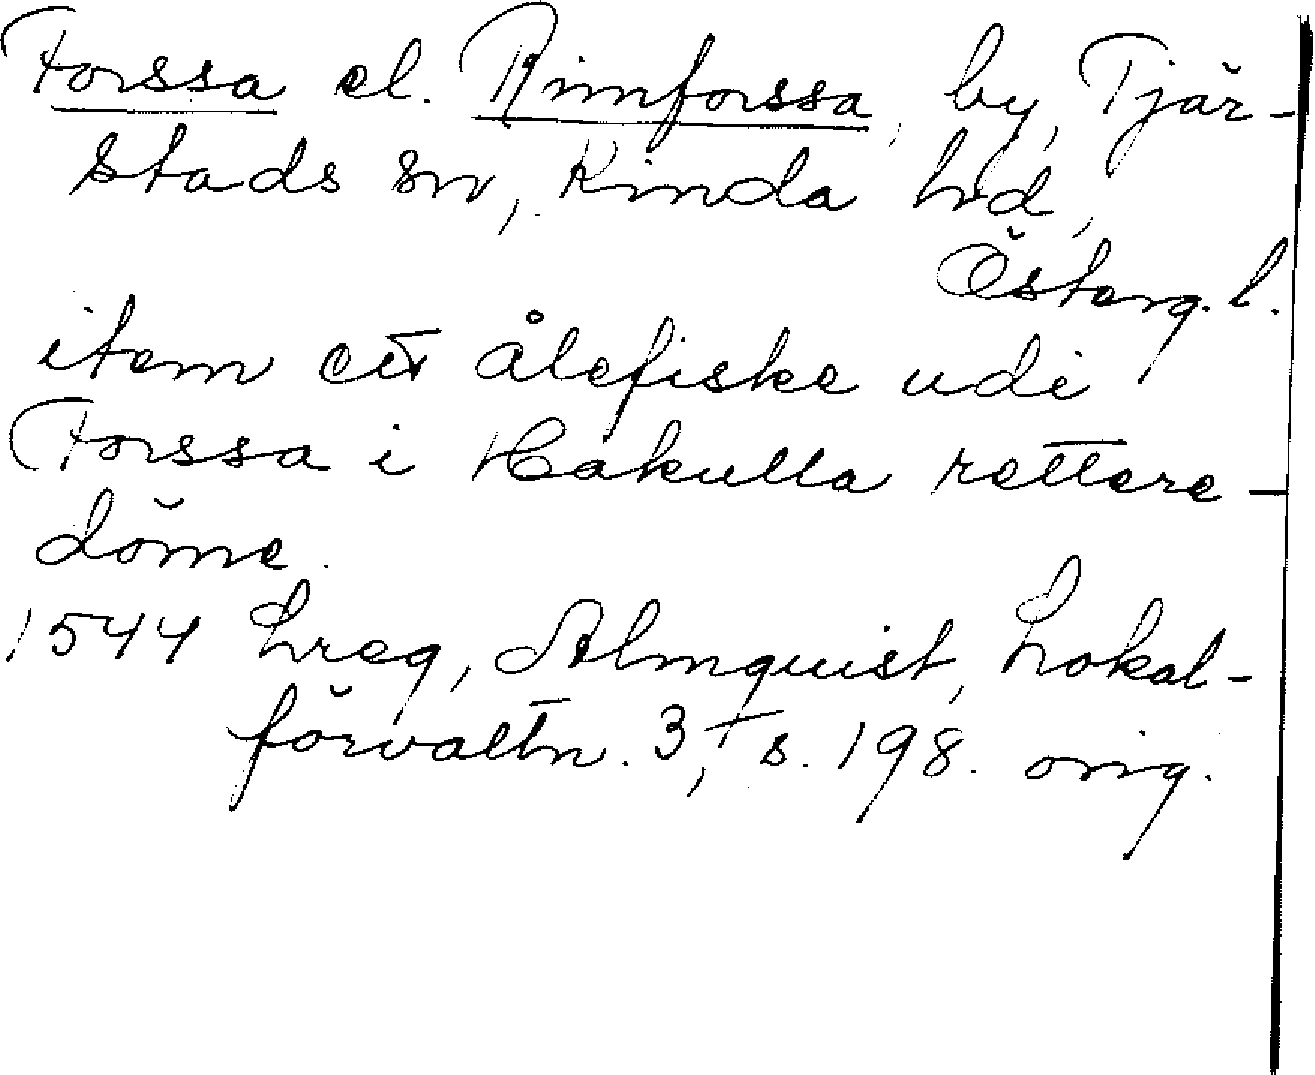 Forssa el. Rimforssa, by, Tjär-
stads sn, Kinda hd,
Österg. l.
item ett ålefiske udi
Forssa i Hakulla rettere-
döme.
1544 Lreg, Almquist, Lokal-
förvaltn. 3, s. 198. orig.